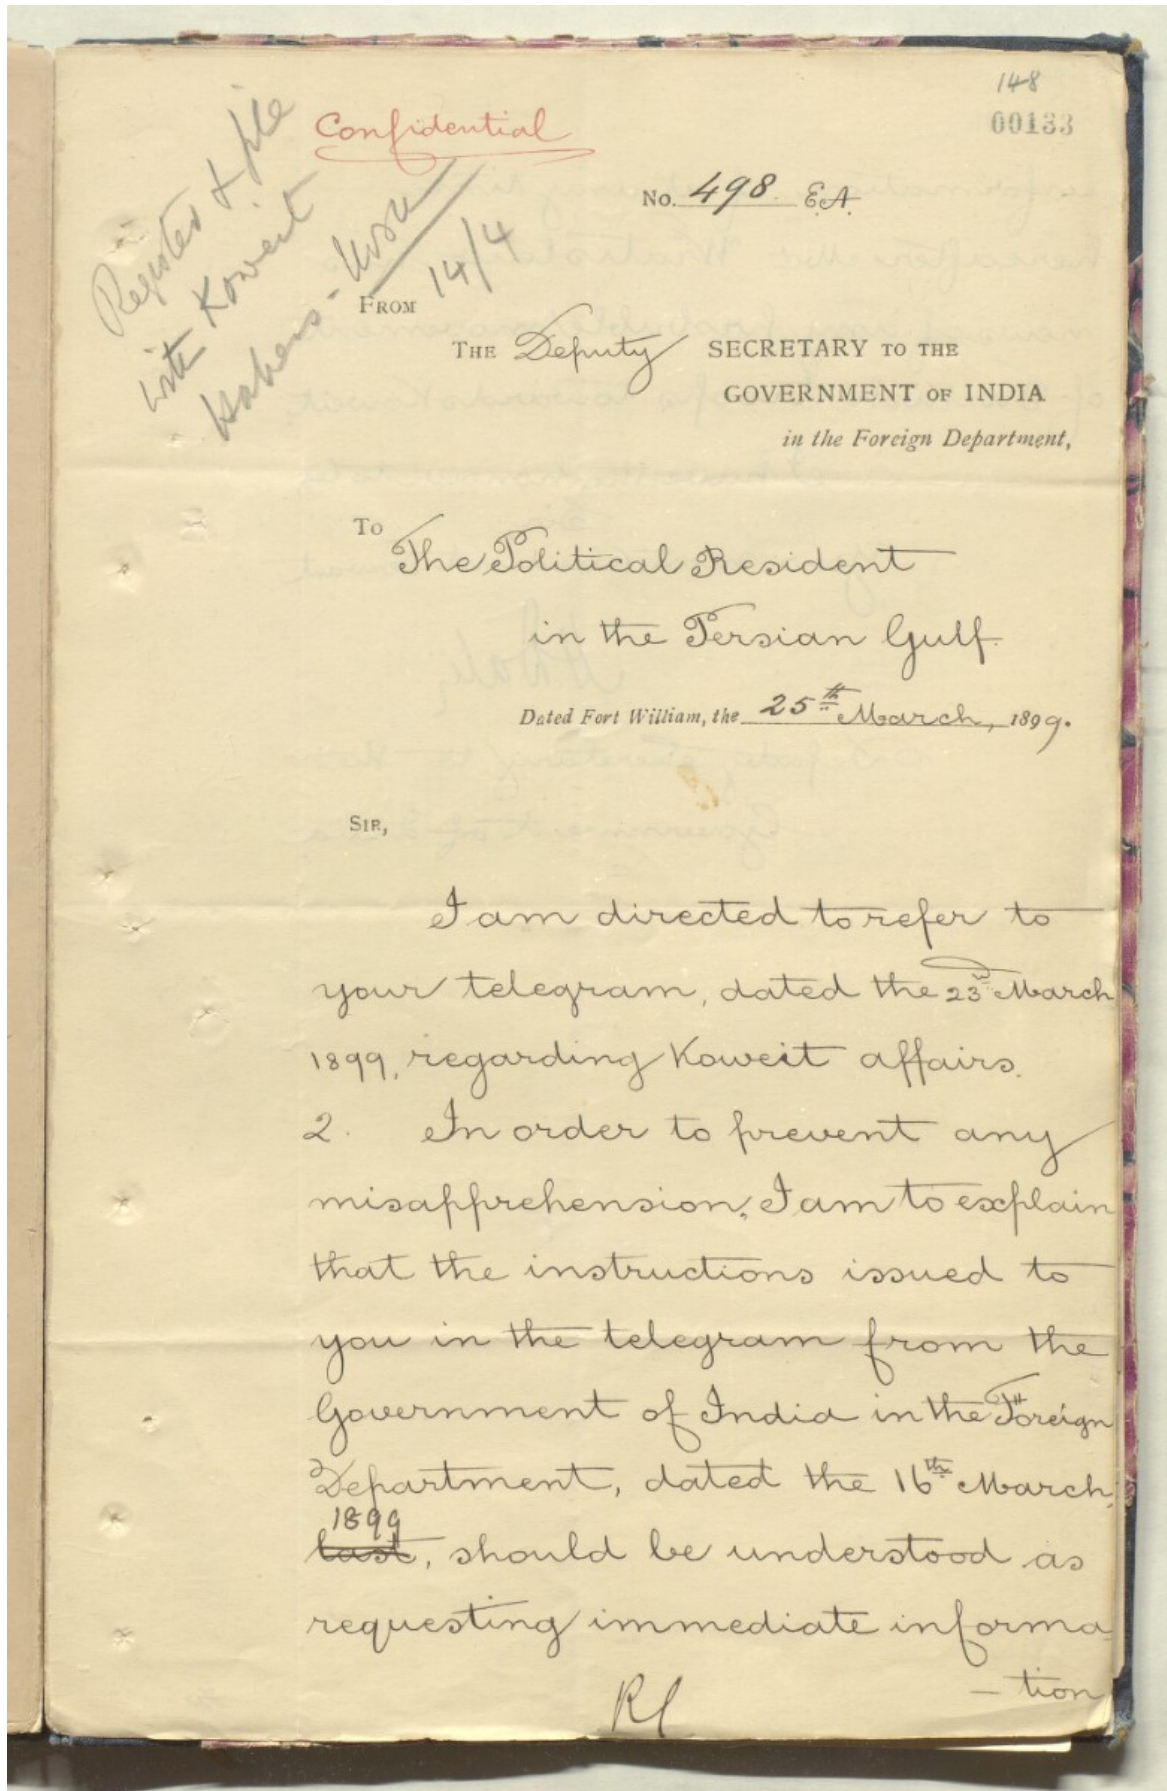 148
00133
Confidential
Register & file
with Koweit
14/4
No. 498. E.A.
FROM
THE Deputy SECRETARY TO THE
GOVERNMENT OF INDIA
in the Foreign Department,
To
The Political Resident
in the Persian Gulf.
Dated Fort William, the 25th March, 1899.
SIR,
I am directed to refer to
your telegram, dated the 23rd March
1899, regarding Koweit affairs.
2. In order to prevent any
misapprehension, I am to explain
that the instructions issued to
you in the telegram from the
Government of India in the Foreign
Department, dated the 16th March,
1899
last, should be understood as
requesting immediate informa-
- tion